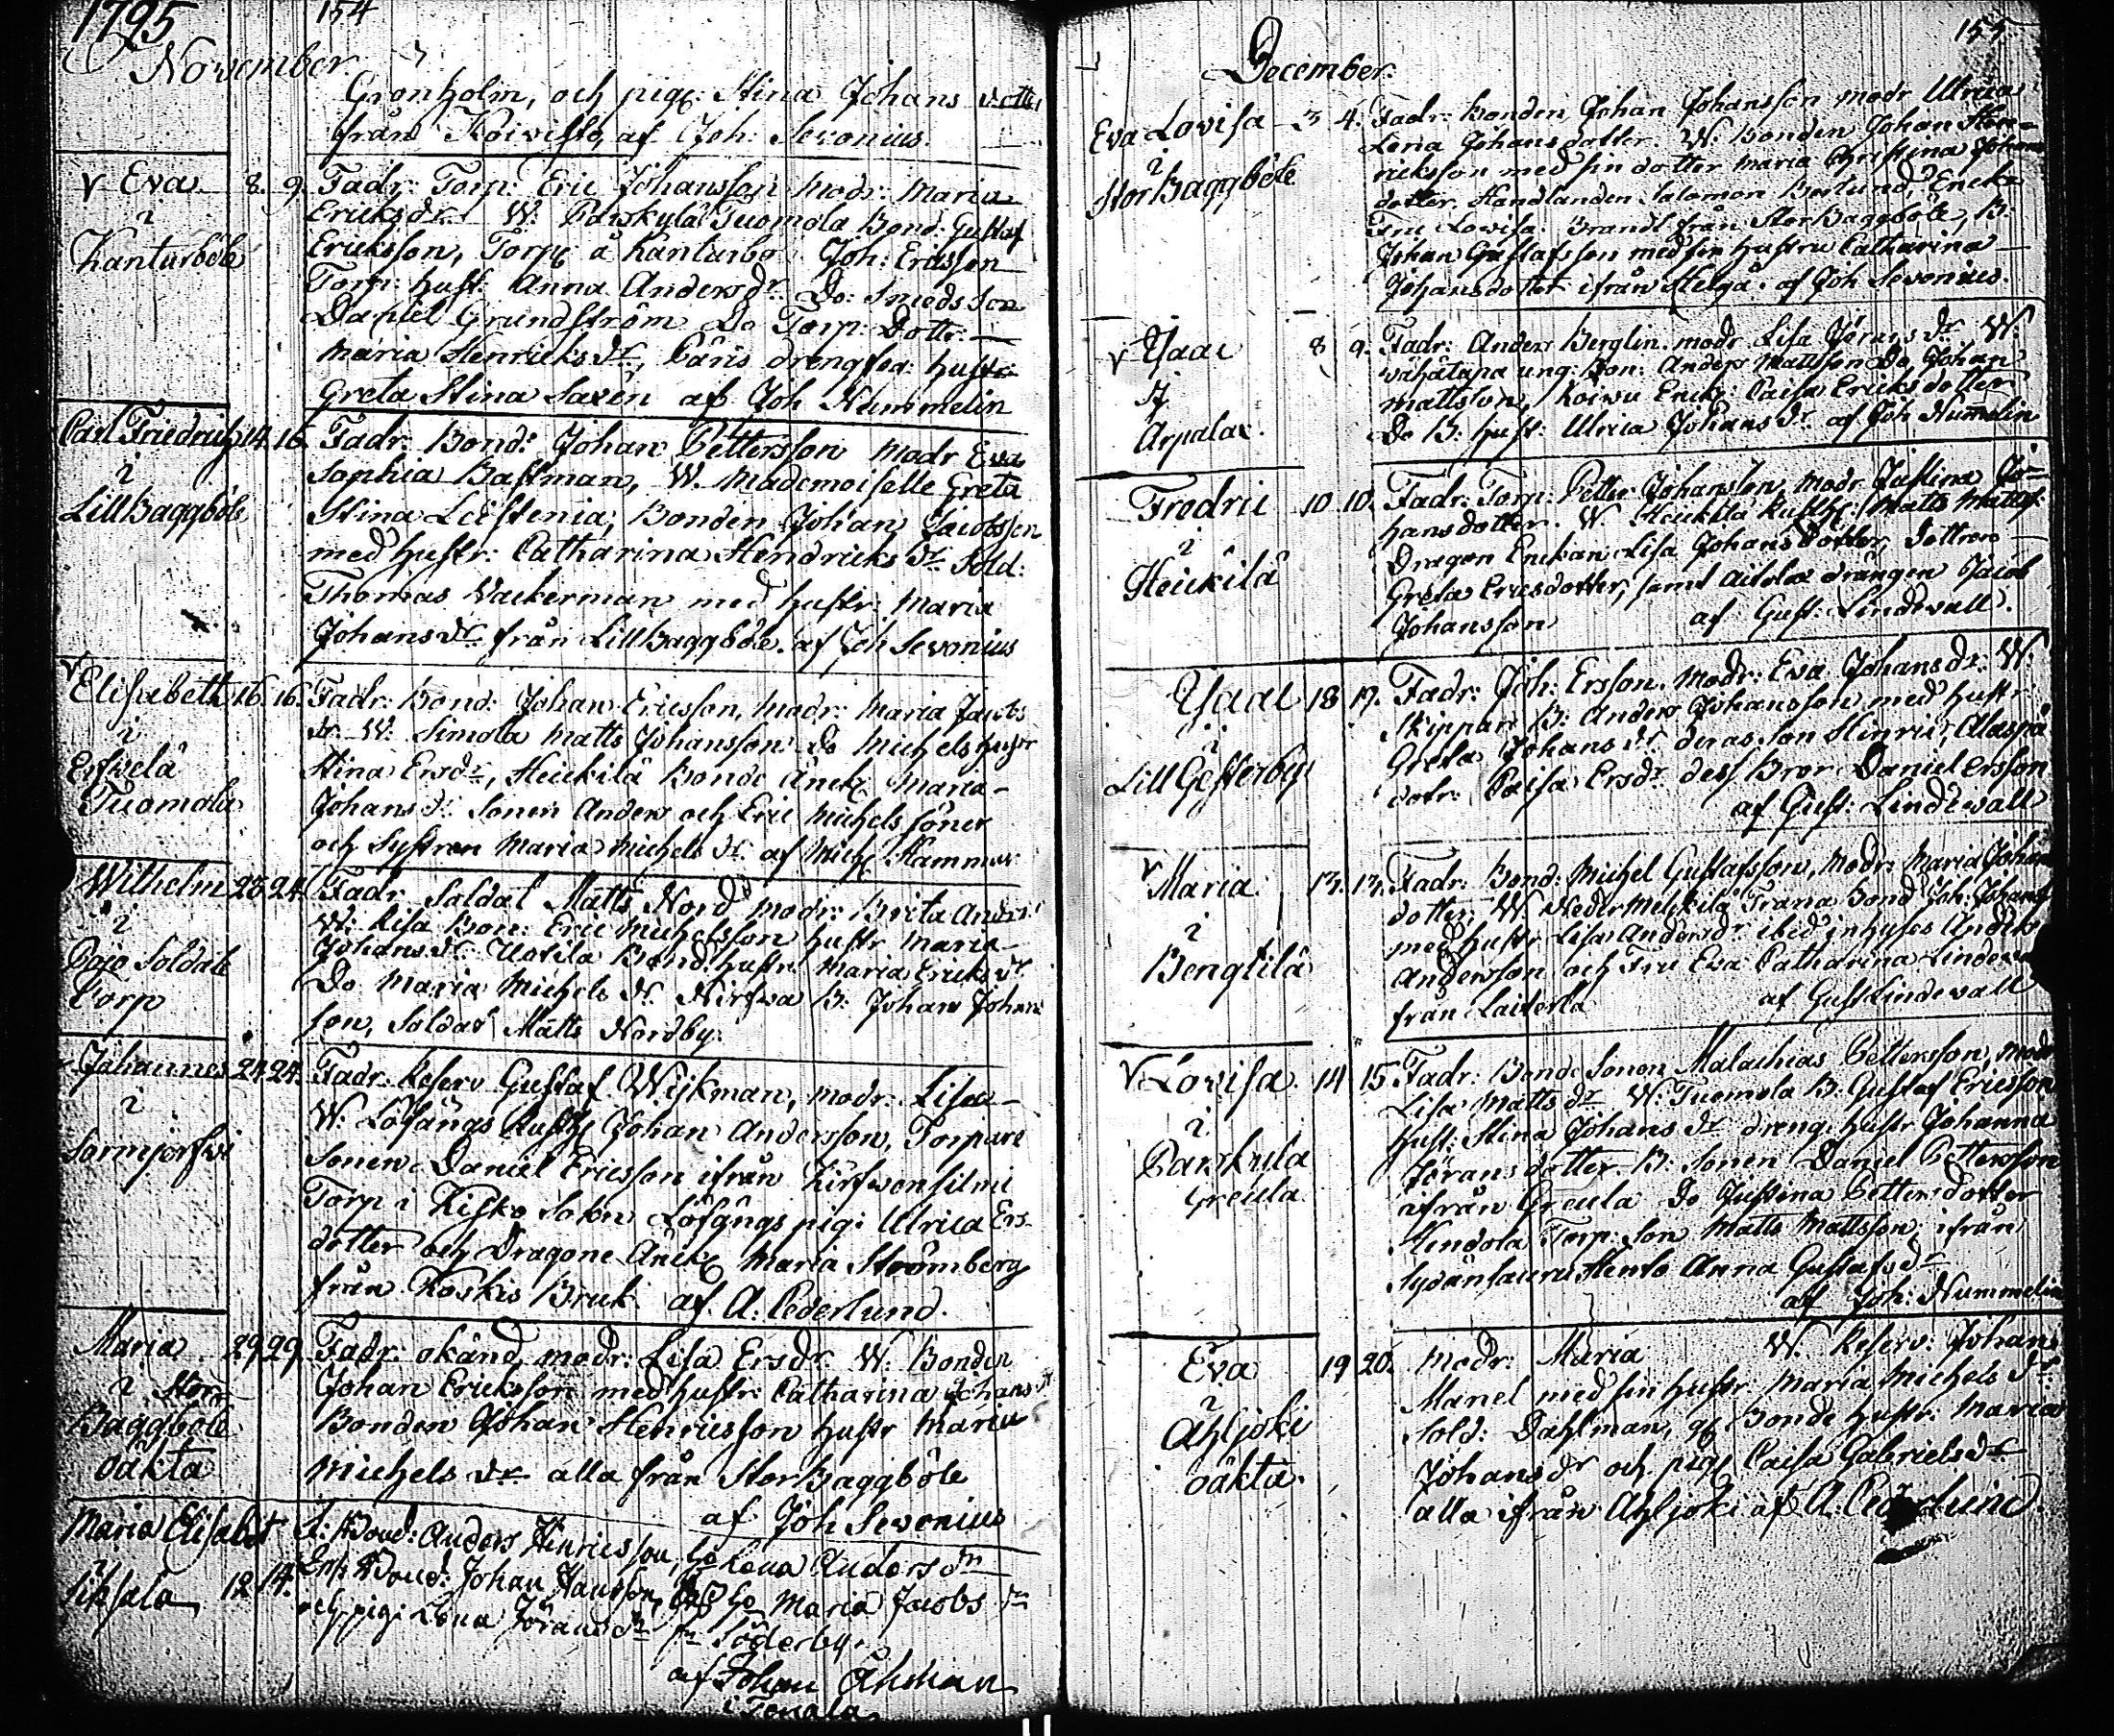 1795
154
November
Grönholm, och pig: Stina Johans dotter
från Koivisto, af Joh: Sevonius.
v Eva 8. 9. Fadr: Torp: Eric Johansson Modr: Maria
i
Kanturböle
Ericks dr W: Parskylä Tuomola Bond: Gustaf
Ericksson, Torp: å Kanturbo Joh: Ericsson
Torp: hust: Anna Anders dr Do: Smeds Son
Daniel Grundström Do Torp: Dottr:
Maria Henricks dr, dreng hustr:
Greta Stina Saxén af Joh Nummelin
Carl Friedrich 14. 16. Fadr: Bond: Johan Pettersson Modr Eva
i
LillBaggböle
Sophia Bastman, W. Mademoiselle Greta
Stina Bonden Johan Jacobsson
med hustr: Catharina Hendricks dr Sold:
Thomas Vackerman med hustr: Maria
Johans dr från LillBaggböle. af Joh Sevonius
v Elisabeth 16. 16. Fadr: Bond: Johan Ericsson, Modr: Maria Jacobs
i
Tuomola
dr W. Simola Matts Johansson Do Michels hustr
Stina Ersdr, Heickilä Bonde Maria
Johans dr Sonen Anders och Eric Michels söner
och Systren Maria Michels dr af Mich: Hammar
Wilhelm 23. 24. Fadr Soldat Matts Nord modr: Brita Anders
i
Pojo Soldate
Torp
W: Bon: Eric Michelsson hustr Maria
Johans dr Uotila Bond: hustr Maria Ericks dr
Do Maria Michels dr Hirfwa B: Johan Johans
son, Soldat Matts Nordby.
Johannes 24. 24. Fadr: Reserv Gustaf Wijkman, modr: Lisa
i
Sarmjerfwi
W. Löfångs Rusth: Johan Andersson, Torpare
Sonen Daniel Ericsson ifrån Kirfwensilmi
Torp i Kisko Sokn Löfångs pig: Ulrica Ers-
dotter och Dragone Änck: Maria Strömberg
från Koskis Bruk. af A: Cederlund.
Maria 29. 29. Fadr: okänd, modr: Lisa Ersdr W: Bonden
i Stor
Baggböle
oäkta
Johan Ericksson med hustr: Catharina Johans dr
Bonden Johan Henricsson hustr Maria
Michels dr alla från StorBaggböle
af Joh Sevonius
Maria Elisabet
12 14.
F: Bond: Anders Hinricsson, ho Lena Anders dr
Bond: Johan Hansson, ho Maria Jacobs dr
och pig: Lena Jörans dr fr Söderby.
af Johan Åhman
i Tenala
155
December.
Eva Lovisa 3 4. Fadr: Bonden Johan Johansson modr Ulrica
i
StorBaggböle
Lena Johansdotter. W: Bonden Johan Hen-
ricksson med sin dotter Maria Christina Johans
dotter. Handlanden Solomon Enck
Fru Lovisa Brandt från StorBaggböle, B:
Johan Gustafsson med sin hustru Catharina
Johansdotter ifrån Helgå. af Joh Sevonius.
v Isaac 8 9. Fadr: Anders Berglin. modr Lisa Jörans dr W:
i
Arpalax.
Vähätapa ung: Bon: Anders Mattsson Do Johan
Mattsson, Koivu Enck: Caisa Ericksdotter
Do B: hust: Ulrica Johans dr af Joh Nummelin
Fredric 10. 10. Fadr: Torp: Petter Johansson, modr Justina Jo-
i
Heickilä
hansdotter. W. Heickilä Rusth: Matts Matts:
Dragon Enckan Lisa Johans Dotter, Dottren
Greta Ericsdotter, samt drängen Jacob
Johansson af Gust: Lindevall.
Isaac 18 19. Fadr: Joh: Ersson. Modr: Eva Johansdr: W:
i
LillGesterby
Skeppar B: Anders Johansson med hustr:
Greta Johans dr deras Son Hinric, Alaspä
dotr: Caisa Ersdr dess Bror Daniel Ersson
af Gust: Lindewall
v Maria 13. 13. Fadr: Bond: Michel Gustafsson, Modr: Maria Johans
i
Bengtilä
dotter: W. Neder Melckilä Frana Bond Joh: Johanss
med hustr Lisa Anders dr ibid inhyses Anders
Andersson och Fru Eva Catharina Lindeva
från Laiterla af Gust Lindewall
v Lovisa. 14 15 Fadr: Bonde Sonen Malachias Pettersson, Modr
i
Parskyla
Greula
Lisa Matts dr W: Tuomola B: Gustaf Ericsson
hust: Stina Johans dr dreng: hustr Johanna
Jörans dotter. B: Sonen Daniel Pettersson
ifrån Greula Do Justina Petters dotter
Hendola Torp: Son Matts Mattsson ifrån
Anna Gustafs dr
af Joh: Nummelin
Eva 19 20. Modr: Maria W. Reserv: Johan
i
Ahljoki
oäkta.
Manel med sin hustr: Maria Michels dr
Sold: Dahlman, Bonde hustr: Maria
Johans dr och pig: Caisa Gabriels dr
alla ifrån Ahljoki af A. Cederlund.